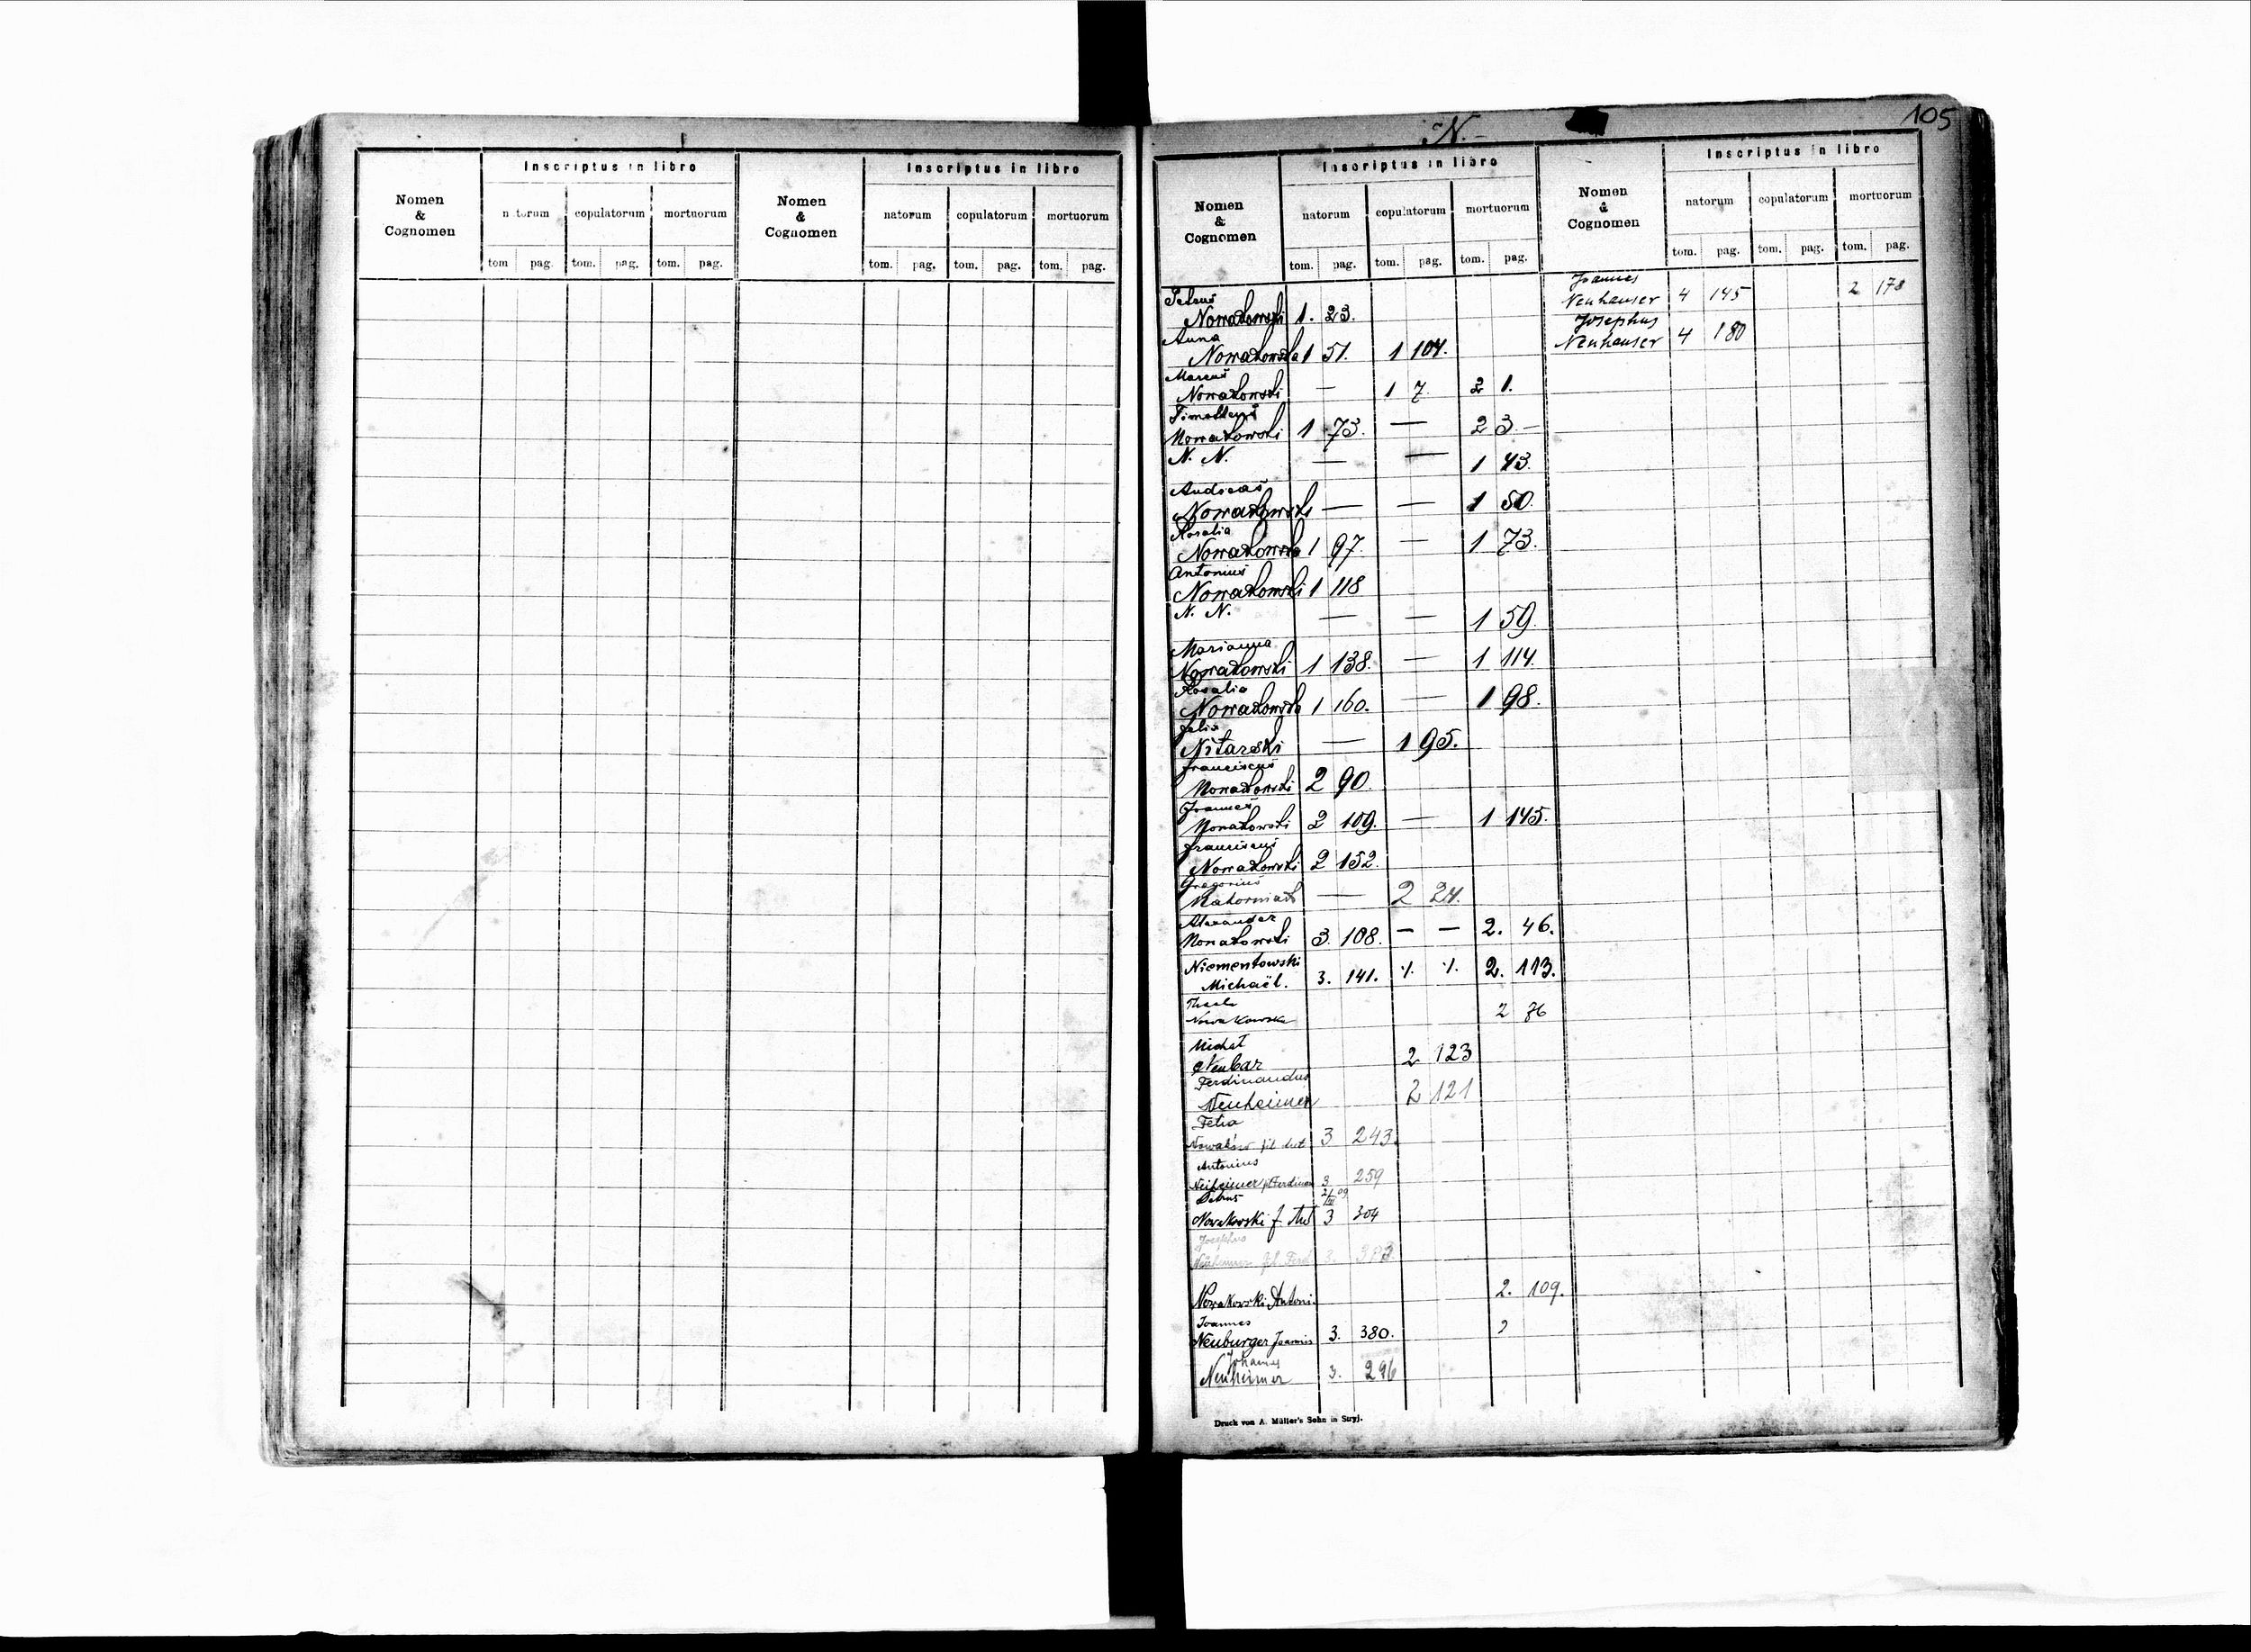 Inscriptus in libro
Inscriptus in libro
Nomen & Cognomen
natorum copulatorum mortuorum
Nomen & Cognomen
natorum copulatorum mortuorum
tom pag. tom. pag. tom. pag.
tom. pag. tom. pag. tom. pag.
105
N.-
Inscriptus in libro
Inscriptus in libro
Nomen & Cognomen
natorum copulatorum mortuorum
Nomen & Cognomen
natorum copulatorum mortuorum
tom. pag. tom. pag. tom. pag.
tom. pag. tom. pag. tom. pag.
Petrus
Nowakowski 1. 23.
Anna
Nowakowska 1 51. 1 104.
Marcus
Nowakowski — 1 7. 2 1.
Timotheus
Nowakowski 1 73. — 2 3.-
N. N. — — 1 43.
Andreas
Nowakowski — — 1 50.
Rosalia
Nowakowska 1 97. — 1 73.
Antonius
Nowakowski 1 118
N. N. — — 1 59.
Marianna
Nowakowski 1 138. — 1 114.
Rosalia
Nowakowska 1 160. — 1 98.
Felix
Nitarski — 1 95.
Franciscus
Nowakowski 2 90.
Joannes
Nowakowski 2 109. — 1 145.
Franciscus
Nowakowski 2 152.
Gregorius
— 2 24.
Alexander
Nowakowski 3. 108. — — 2. 46.
Niementowski
Michaël. 3. 141. ·/. ·/. 2. 113.
Nowakowska 2 86
Michał
Neubar 2 123
Ferdinandus
Neuheimer 2 121
3 243.
Antonius
Neuheimer 3 259
Petrus
Nowakowski f. 3 304
Josephus
Neuheimer 3.
Nowakowski Antoni. 2. 109.
Joannes
Neuburger Joannis 3. 380. 2
Johannes
Neuheimer 3. 296
Joannes
Neuhauser 4 145 2 178
Josephus
Neuhauser 4 180
Druck von A. Müller's Sohn in Stryj.